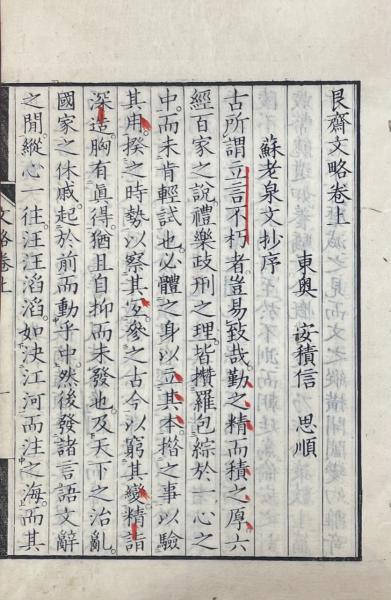 艮齋文略卷上
東奧 安積信 思順
蘇老泉文抄序
古所謂立言不朽者豈易致哉勤之精而積之厚六
經百家之說禮樂政刑之理皆攢羅包綜於一心之
中而未肯輕試也必體之身以立其本揩之事以驗
其用揆之時勢以察其宜參之古今以窮其變精詣
深造胸有眞得猶且自抑而未發也及天下之治亂
國家之休戚起於前而動乎中然後發諸言語文辭
之閒縱心一往汪汪滔滔如決江河而注之海而其
文略卷上